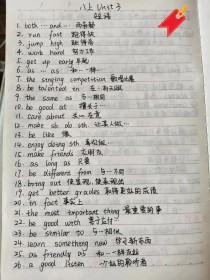 八上 Unit 3
短语
1. both ... and ... 两者都
2. run fast 跑得快
3. jump high 跳得高
4. work hard 努力工作
5. get up early 早起
6. as ... as 和...一样
7. the singing competition 歌唱比赛
8. be talented in 在...有天赋
9. the same as 与...相同
10. be good at 擅长于...
11. care about 关心 在意
12. make sb do sth 让某人做...
13. be like 像
14. enjoy doing sth 喜欢做...
15. make friends 交朋友
16. as long as 只要
17. be different from 与...不同
18. bring out 使显现, 使表现出
19. get better grades 取得更好的成绩
20. in fact 事实上
21. the most important thing 最重要的事
22. be good with 善于应付...
23. be similar to 与...相似
24. learn something new 学习新东西
25. as friendly as 和...一样友好
26. a good listener 一个好的聆听者